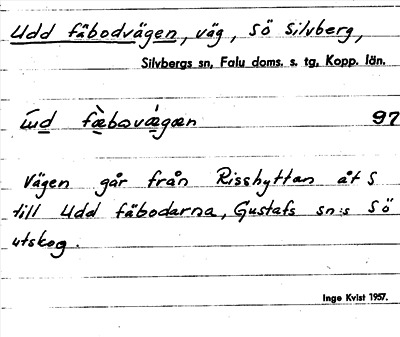 Udd fäbodvägen, väg, Sö Silvberg,
Silvbergs sn, Falu doms. s. tg, Kopp. län.
ud fæ̀bωvæ̀gæn 97
Vägen går från Risshyttan åt S
till Udd fäbodarna, Gustafs sn:s Sö
utskog.
Inge Kvist 1957.